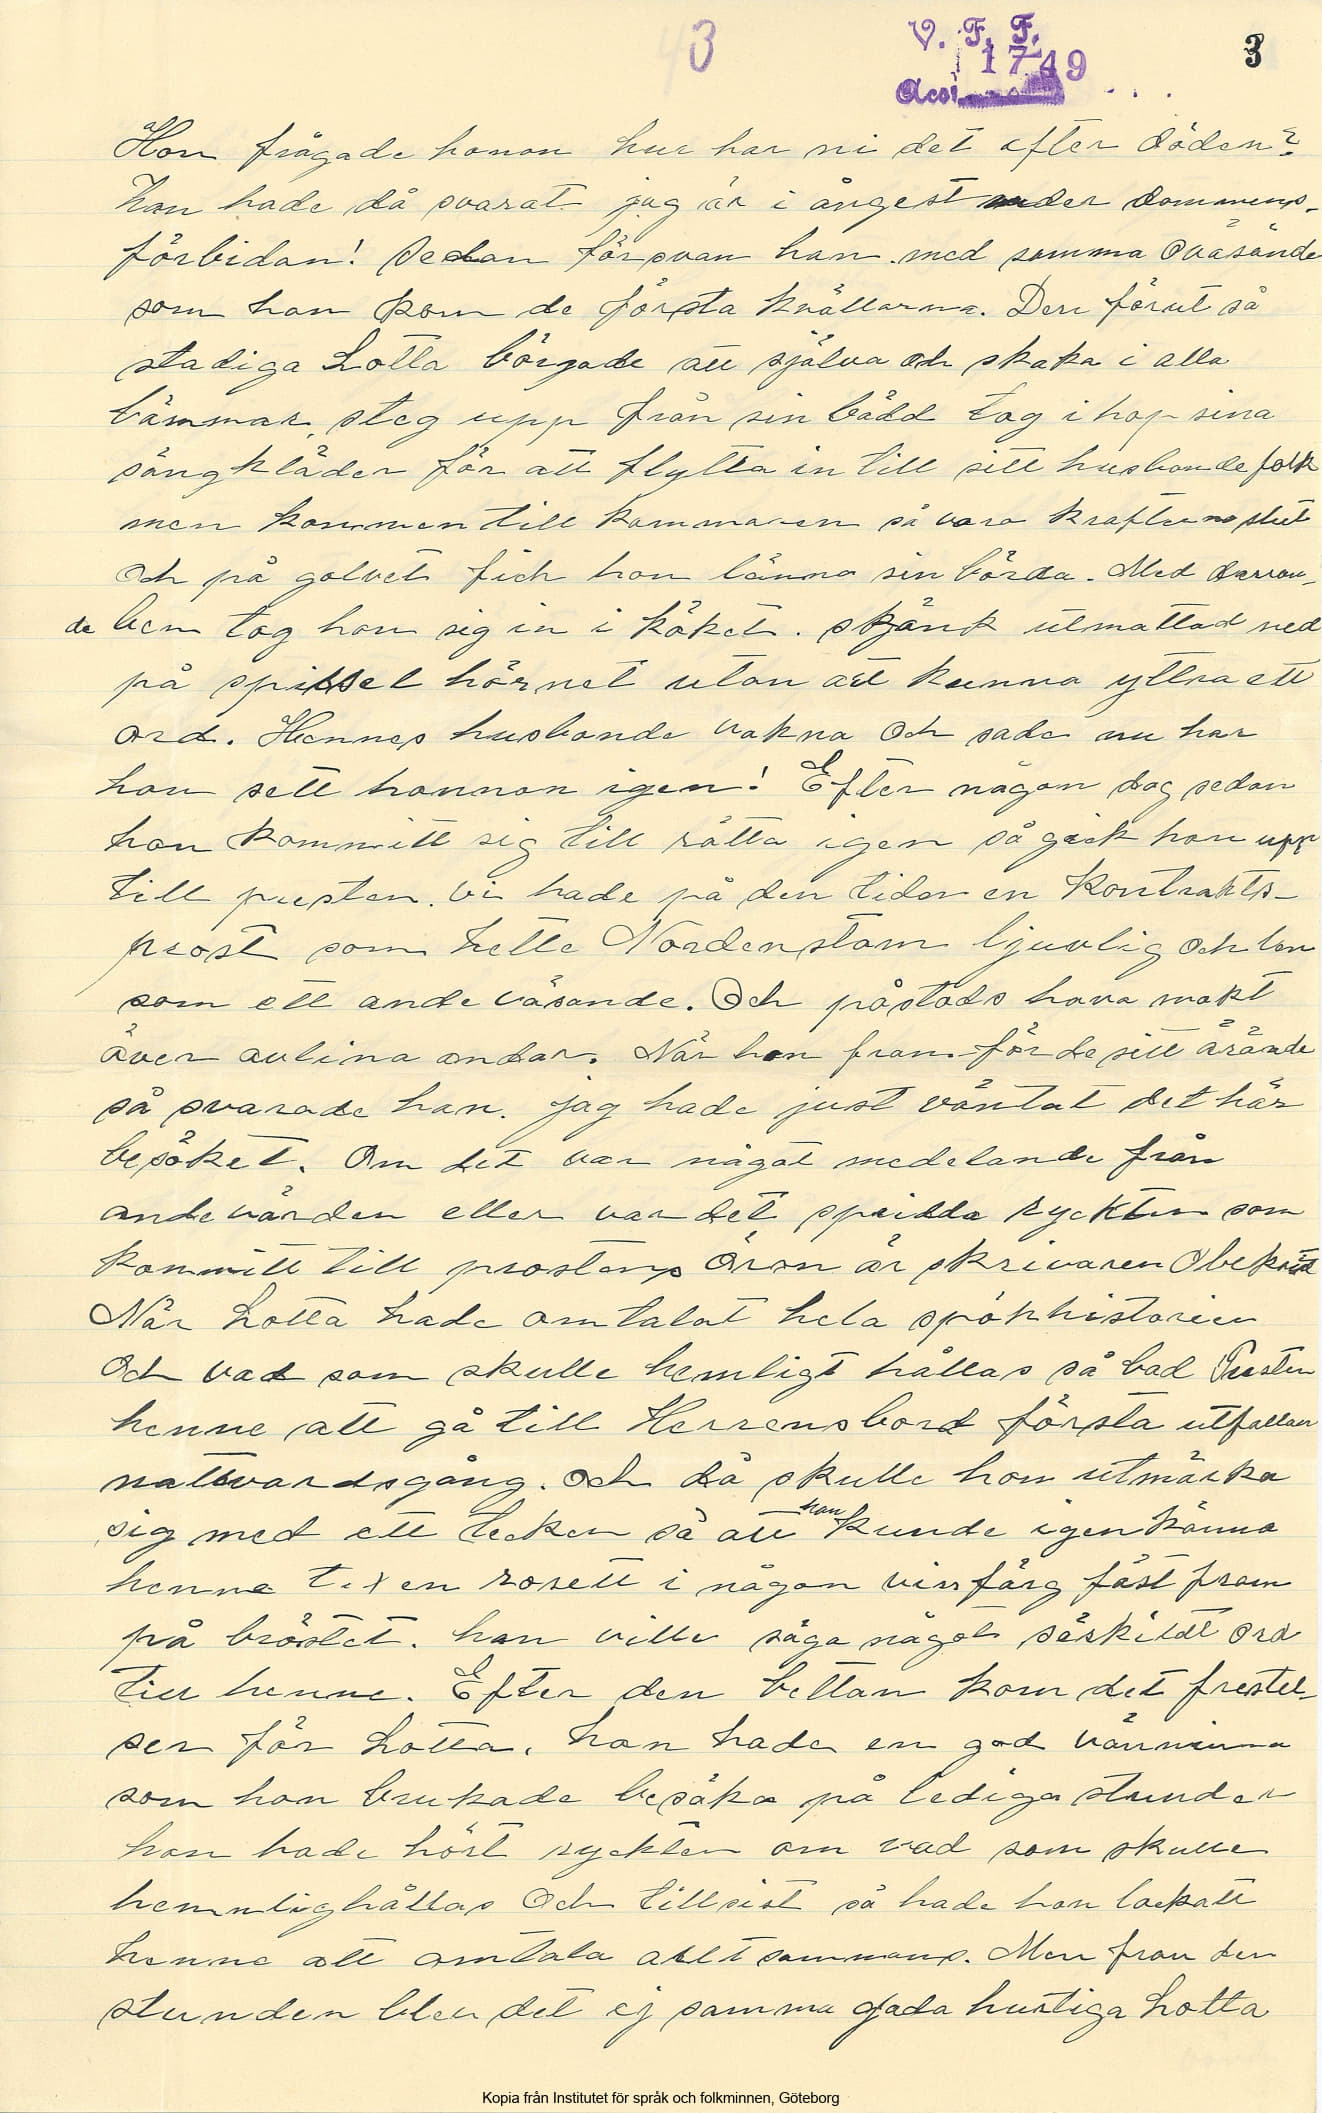 43
V. F. F.
1749
Acc.
3
Hon frågade honon hur har ni det efter döden?
han hade då svarat jag är i ångest under dommens-
förbidan! Sedan försvan han med samma Oväsände
som han kom de första kvällarna. Den förut så
stadiga Lotta börgade att själva och skaka i alla
lämmar, steg upp från sin bädd tog i hop sina
sängkläder för att flytta in till sitt husbondefolk
men kommen till kammaren så voro krafterna slut
Och på golvet fich hon lämna sin börda. Med darran-
de ben tog hon sig in i köket. skjönk utmattad ned
på spissel hörnet utan att kunna yttra ett
ord. Hennes husbonde vakna Och sade nu har
hon sett honnon igen! Efter någon dag sedan
hon kommitt sig till rätta igen så gick hon upp
till prästen. vi hade på den tiden en Kontrakts-
prost som hette Nordenstam ljuvlig och len
som ett andeväsande. Och påstods hava makt
över avlina andar. När hon framförde sitt ärände
så svarade han. jag hade just väntat det här
besöket. Om det var något medelande från
andevärden eller var det spridda rykten som
kommitt till prostens öron är skrivaren Obekant
När Lotta hade omtalat hela spökhistorien
Och vad som skulle hemligt hållas så bad Prästen
henne att gå till Herrensbord första utfallan
nattvardsgång. och då skulle hon utmärka
sig med ett tecken så att han kunde igenkänna
henne t.ex en rosett i någon viss färg fäst fram
på bröstet. han ville säga något särskildt Ord
till henne. Efter den bettan kom det frestel-
ser för Lotta. hon hade en god väninna
som hon brukade besöka på lediga stunder
hon hade hört rykten om vad som skulle
hemmlighållas Och tillsist så hade hon lockatt
henne att omtala alltsammans. Men från den
stunden blev det ej samma glada hurtiga Lotta
Kopia från Institutet för språk och folkminnen, Göteborg